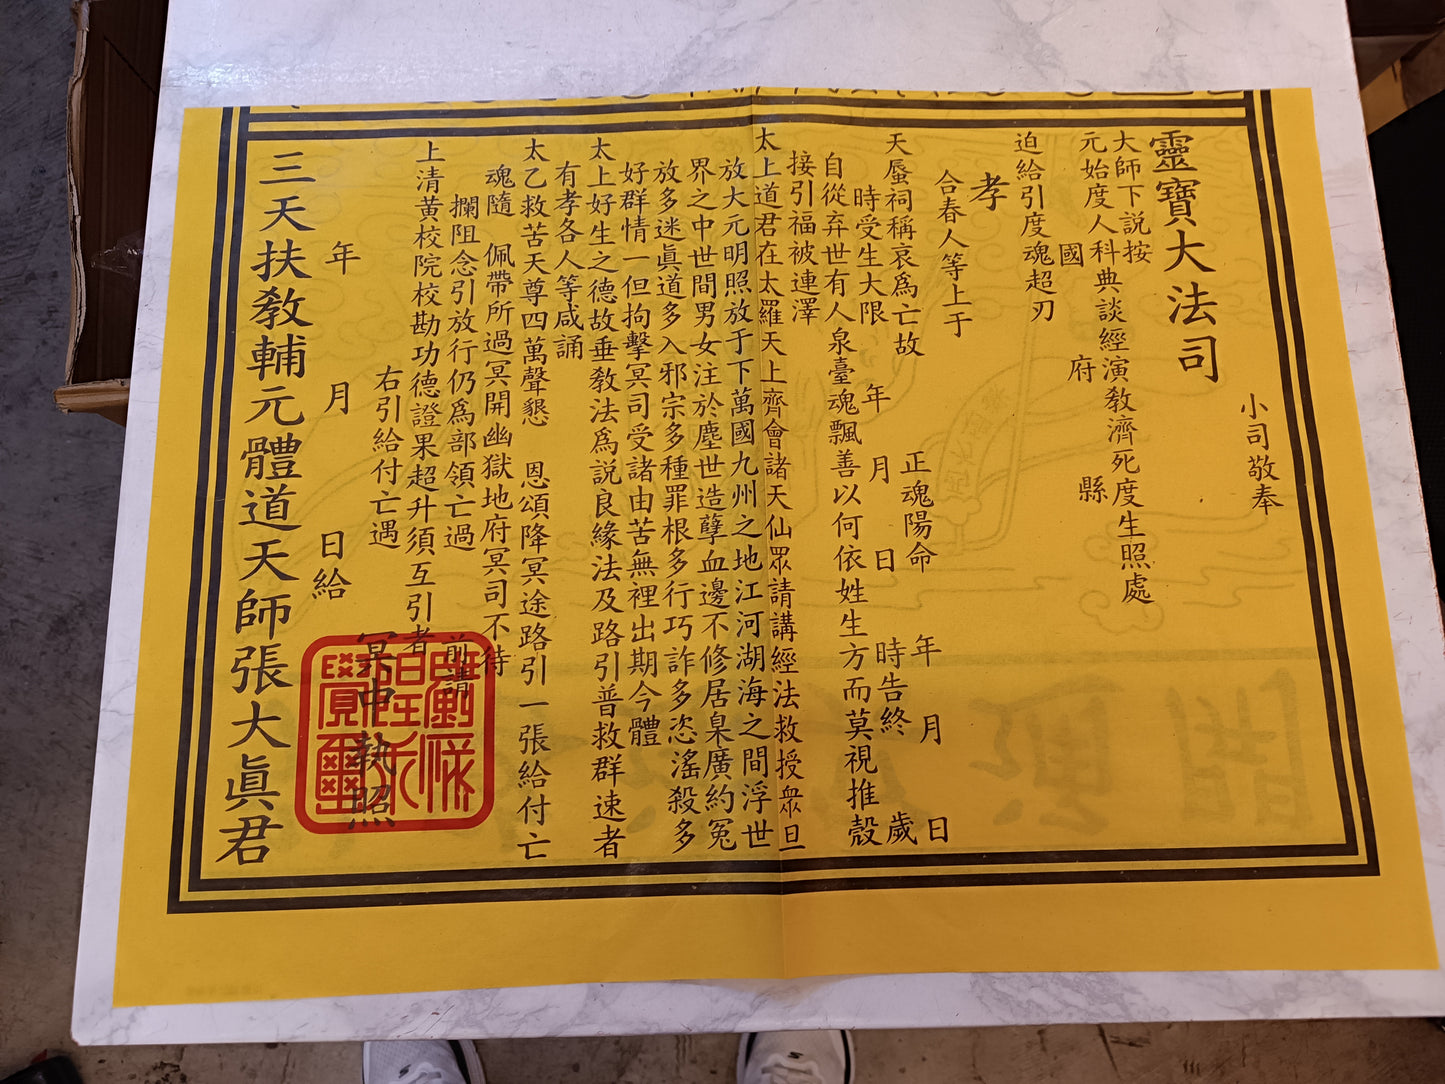 小司敬奉
靈寶大法司
大師下説按
元始度人科典談經演敎濟死度生照處
國 府 縣
迫給引度魂超刃
孝
合春人等上于
正魂陽命 年 月 日
天蜃祠稱哀爲亡故
時受生大限 年 月 日 時告終 歲
自從弃世有人泉臺魂飄善以何依姓生方而莫視推殼
接引福被連澤
太上道君在太羅天上齊會諸天仙眾請講經法救授眾旦
放大元明照放于下萬國九州之地江河湖海之間浮世
界之中世間男女注於塵世造孽血邊不修居臬廣約冤
放多迷眞道多入邪宗多種罪根多行巧詐多恣滛殺多
好群情一但拘擊冥司受諸由苦無裡出期今體
太上好生之德故垂敎法爲説良緣法及路引普救群速者
有孝各人等咸誦
太乙救苦天尊四萬聲懇 恩頌降冥途路引一張給付亡
魂隨 佩帶所過冥開幽獄地府冥司不待
攔阻念引放行仍爲部領亡過 前謂
上清黃校院校勘功德證果超升須互引者
右引給付亡遇 冥中執照
年 月 日給
三天扶敎輔元體道天師張大眞君